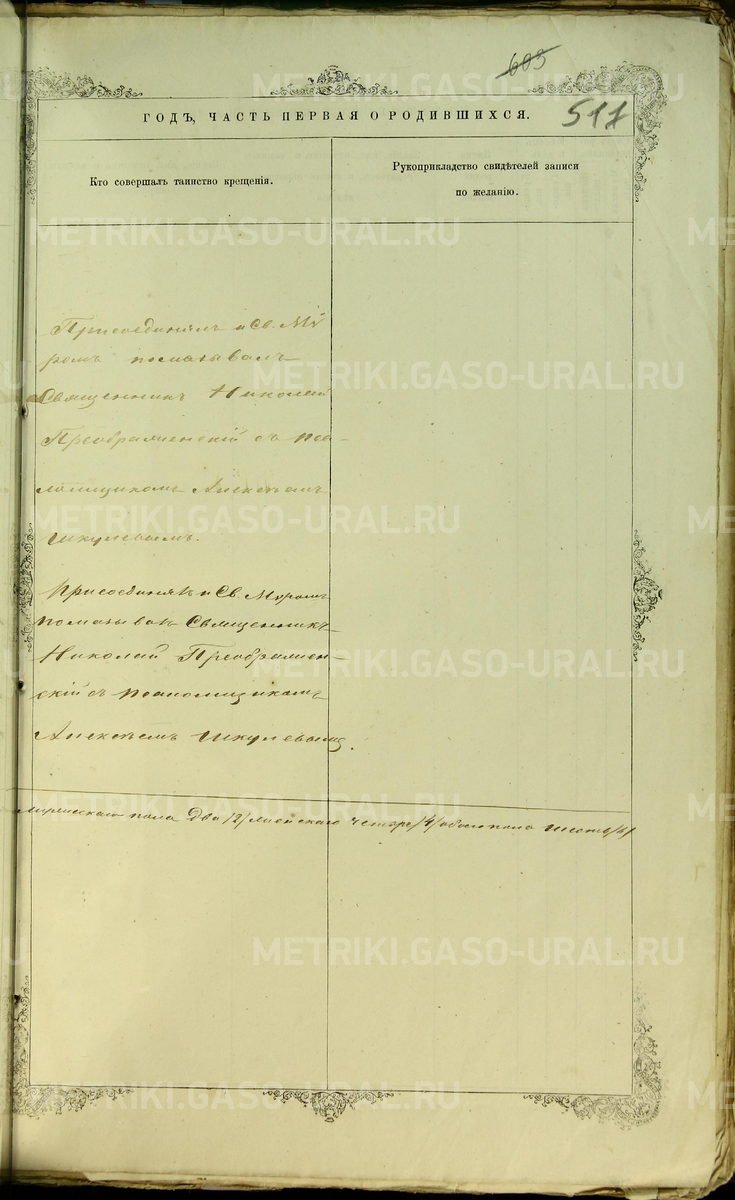 603
517
ГОДЪ, ЧАСТЬ ПЕРВАЯ О РОДИВШИХСЯ.
Кто совершалъ таинство крещенія.
Рукоприкладство свидѣтелей записи
по желанію.
Присоединялъ и Св. Мѵ
ромъ помазывалъ
Священникъ Николай
Преображенскій съ пса-
ломщикомъ Алексѣемъ
Шкулевымъ.
Присоединялъ и Св. Мѵромъ
помазывалъ Священникъ
Николай Преображен-
скій съ псаломщикомъ
Алексѣемъ Шкулевымъ.
мужескаго пола два /2/ женскаго четыре /4/ обоего пола шесть /6/
METRIKI.GASO-URAL.RU